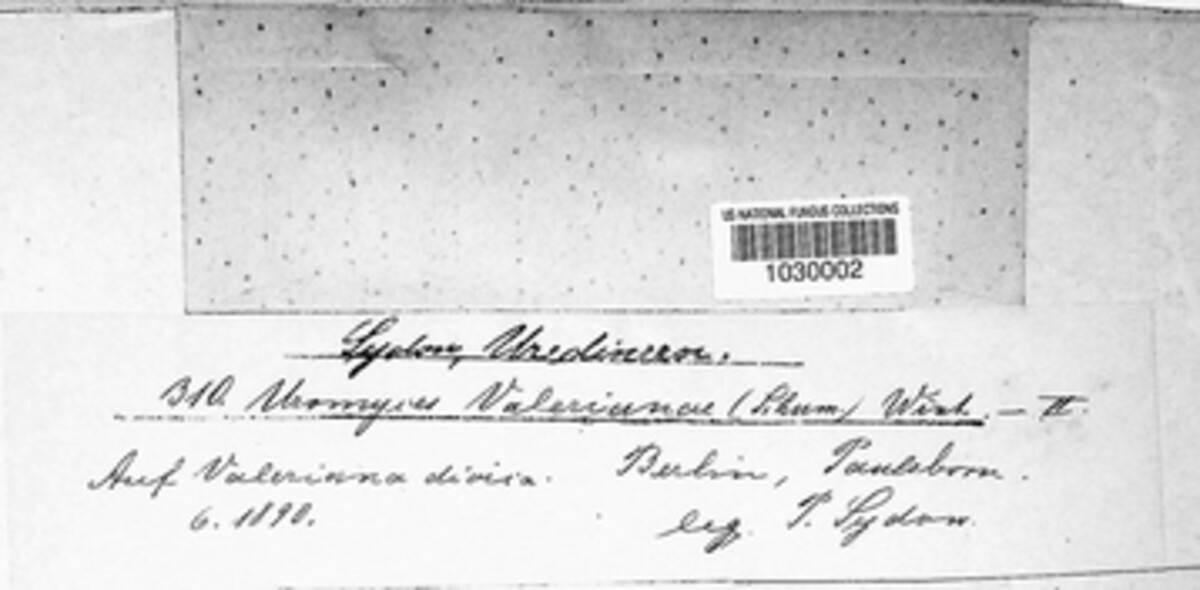 US NATIONAL FUNGUS COLLECTIONS
1030002
Sydow, Uredineen.
310. Uromyces Valerianae (Schum) Wint. — II.
Auf Valeriana dioica. Berlin, Paulsborn.
6. 1890. leg. P. Sydow.